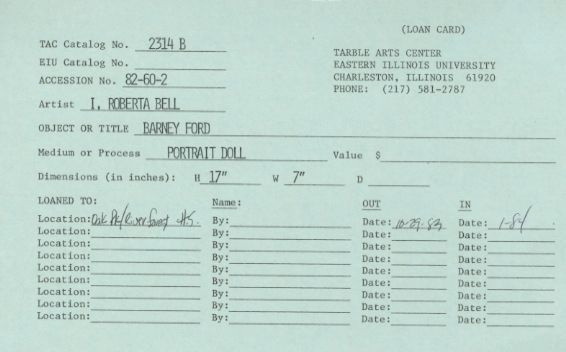 (LOAN CARD)
TAC Catalog No. 2314 B
TARBLE ARTS CENTER
EIU Catalog No.
EASTERN ILLINOIS UNIVERSITY
ACCESSION No. 82-60-2
CHARLESTON, ILLINOIS 61920
PHONE: (217) 581-2787
Artist I. ROBERTA BELL
OBJECT OR TITLE BARNEY FORD
Medium or Process PORTRAIT DOLL Value $
Dimensions (in inches): H 17" W 7" D
LOANED TO: Name: OUT IN
Location: Oak Pk/River Forest H.S. By: Date: 10-29-83 Date: 1-84
Location: By: Date: Date:
Location: By: Date: Date:
Location: By: Date: Date:
Location: By: Date: Date:
Location: By: Date: Date:
Location: By: Date: Date:
Location: By: Date: Date:
Location: By: Date: Date: